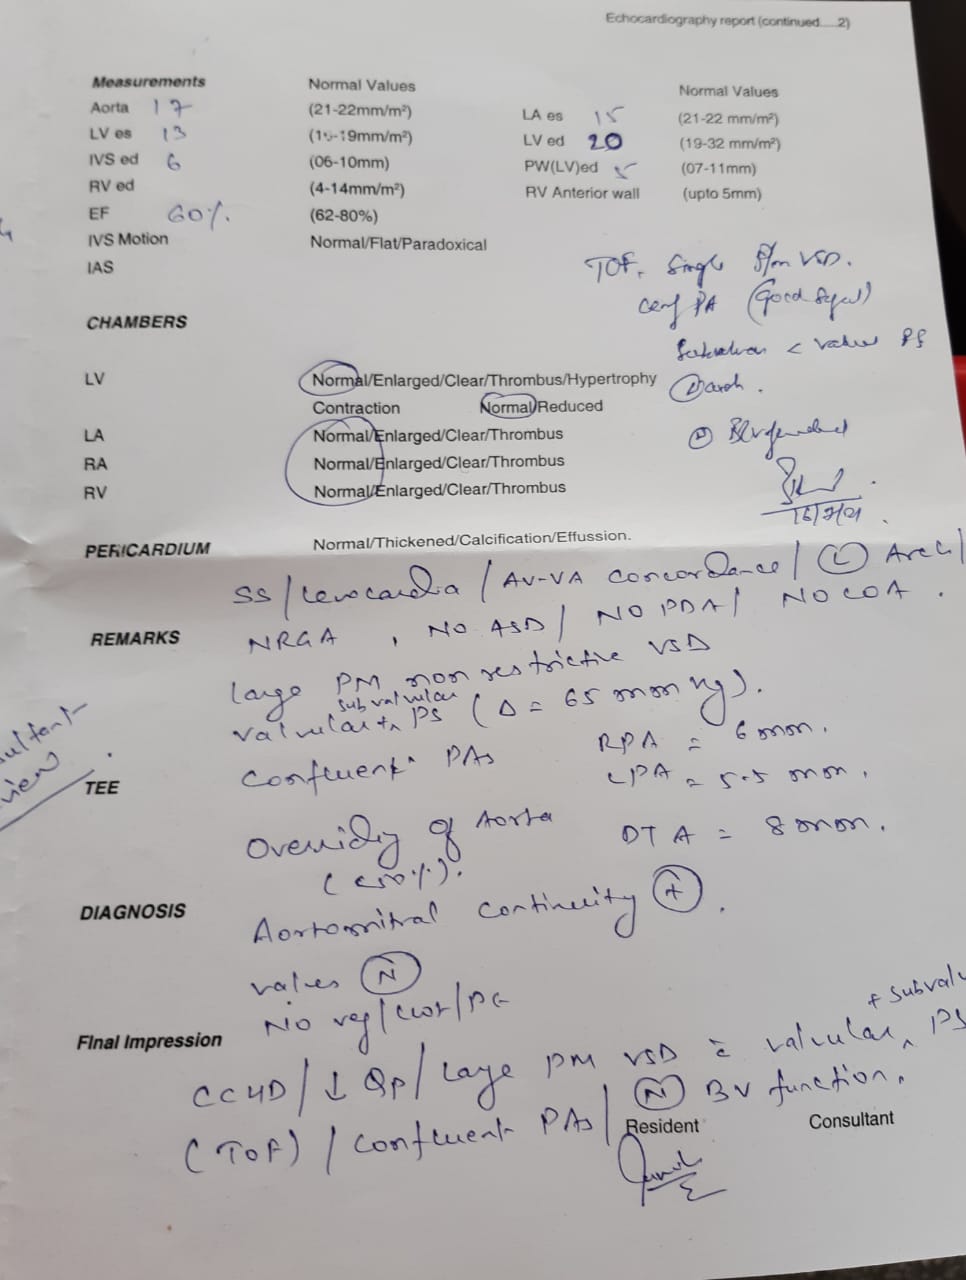 Echocardiography report (continued.....2)
Measurements Normal Values Normal Values
Aorta 17 (21-22mm/m²) LA es 15 (21-22 mm/m²)
LV es 13 (15-19mm/m²) LV ed 20 (19-32 mm/m²)
IVS ed 6 (06-10mm) PW(LV)ed 5 (07-11mm)
RV ed (4-14mm/m²) RV Anterior wall (upto 5mm)
EF 60%. (62-80%)
IVS Motion Normal/Flat/Paradoxical
IAS
TOF, Single VSD.
PA (Good
CHAMBERS
PS
LV Normal/Enlarged/Clear/Thrombus/Hypertrophy
arch.
Contraction Normal/Reduced
LA Normal/Enlarged/Clear/Thrombus
RA Normal/Enlarged/Clear/Thrombus
RV Normal/Enlarged/Clear/Thrombus
PERICARDIUM Normal/Thickened/Calcification/Effussion.
SS/Levocardia/AV-VA concordance/(L) Arch/
REMARKS NRGA, NO ASD/NO PDA/NO COA.
Large PM non restrictive VSD
subvalvular
Valvular + PS (Δ = 65 mm Hg).
Confluent PAs RPA = 6 mm.
TEE LPA = 5.5 mm.
Overriding of Aorta DTA = 8 mm.
DIAGNOSIS
Aortomitral continuity (+).
valves (N)
No veg/clot/PE
+ Subvalv
Final Impression
CCHD/↓ Qp/Large PM VSD c̄ valvular PS
(TOF)/Confluent PAs/(N) BV function.
Resident Consultant